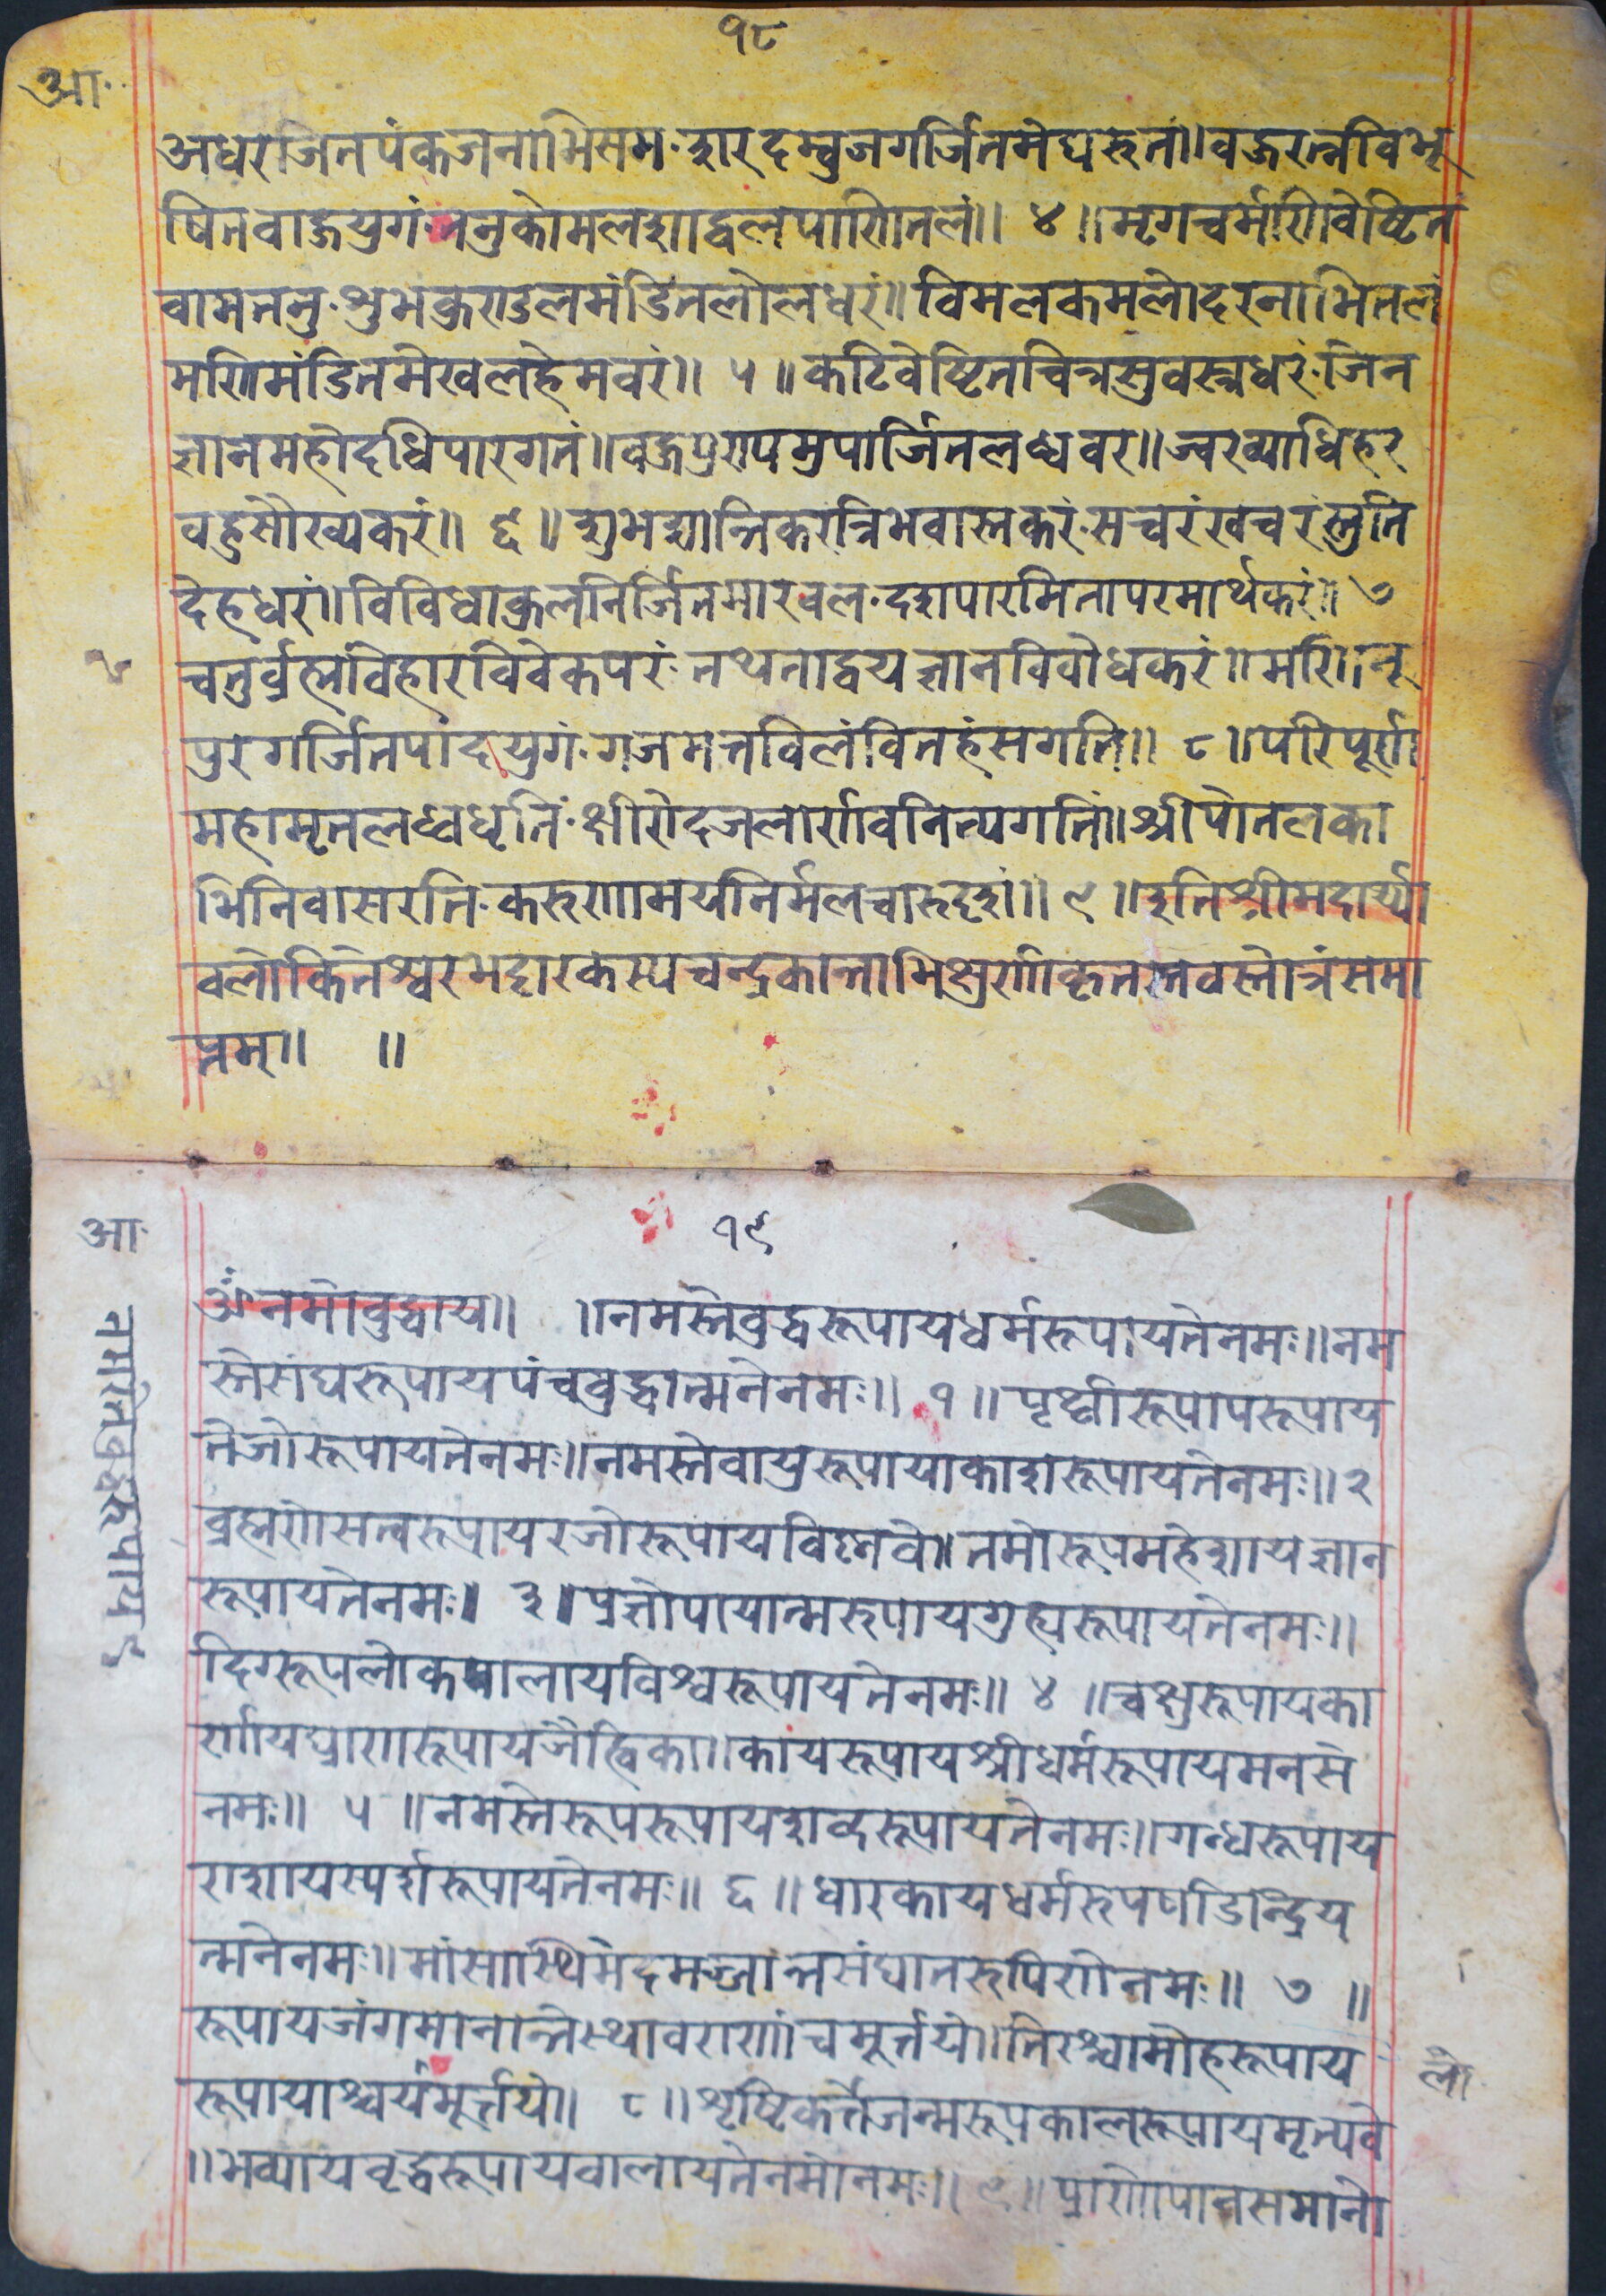 १८
आ·
अधरजितपंकजनाभिसम·शरदम्बुजगर्जितमेघरुतं॥वज्ररत्नविभू
षितवाहुयुगं·तनुकोमलशाद्वलपाणितलं॥ ४ ॥मृगचर्मणिवेष्टित
वामतनु·शुभकुण्डलमंडितलोलधरं॥विमलकमलोदरनाभितलं
मणिमंडितमेखलहेमवरं॥ ५ ॥कटिवेष्टितचित्रसुवस्त्रधरं·जिन
ज्ञानमहोदधिपारगतं॥वहुपुण्यमुपार्जितलब्धवर॥ज्वरव्याधिहर
वहुसौख्यकरं॥ ६ ॥शुभशान्तिकरत्रिभवास्तकरं·सचरंखचरंस्तुति
देहधरं॥विविधाकुलनिर्जितमारवल·दशपारमितापरमार्थकरं॥ ७
चतुर्व्रह्मविहारविवेकपरं·तथताद्वयज्ञानविवोधकरं॥मणि॥नू
पुरगर्जितपादयुगं·गजमत्तविलंवितहंसगति॥ ८ ॥परिपूर्ण
महामृतलब्धधृतिं·क्षीरोदजलार्णवनित्यगतिं॥श्रीपोतलका
भिनिवासरति·करुणामयनिर्मलचारुदृशं॥ ९ ॥इतिश्रीमदार्य्या
वलोकितेश्वरभट्टारकस्यचन्द्रकान्ताभिक्षुणीकृतस्तवस्तोत्रंसमा
प्तम्॥ ॥
१९
आ·
नमस्तेबुद्धरूपाय ऽ
ॐनमोवुद्धाय॥ ॥नमस्तेवुद्धरूपायधर्मरूपायतेनमः॥नम
स्तेसंघरूपायपंचवुद्धात्मनेनमः॥ १ ॥पृथ्वीरूपापरूपाय
तेजोरूपायतेनमः॥नमस्तेवायुरूपायाकाशरूपायतेनमः॥२
व्रह्मणेसत्वरूपायरजोरूपायविष्णवे॥तमोरूपमहेशायज्ञान
रूपायतेनमः॥ ३॥प्रज्ञोपायात्मरूपायगुह्यरूपायतेनमः॥
दिग्रूपलोकपालायविश्वरूपायतेनमः॥ ४ ॥चक्षुरूपायका
र्णायघ्राणरूपायजैह्विका॥कायरूपायश्रीधर्मरूपायमनसे
नमः॥ ५ ॥नमस्तेरूपरूपायशव्दरूपायतेनमः॥गन्धरूपाय
राशायस्पर्शरूपायतेनमः॥ ६ ॥धारकायधर्मरूपषडिन्द्रिय
त्मनेनमः॥मांसास्थिमेदमज्जान्तसंघातरूपिणेनमः॥ ७ ॥
रूपायजंगमानान्तेस्थावराणांचमूर्त्तये॥तिरश्चामोहरूपाय
लो·
रूपायाश्चर्यमूर्त्तये॥ ८ ॥शृष्टिकर्त्तेजन्मरूपकालरूपायमृत्यवे
॥भव्यायवृद्धरूपायवालायतेनमोनमः॥ ९ ॥प्राणापानसमानो